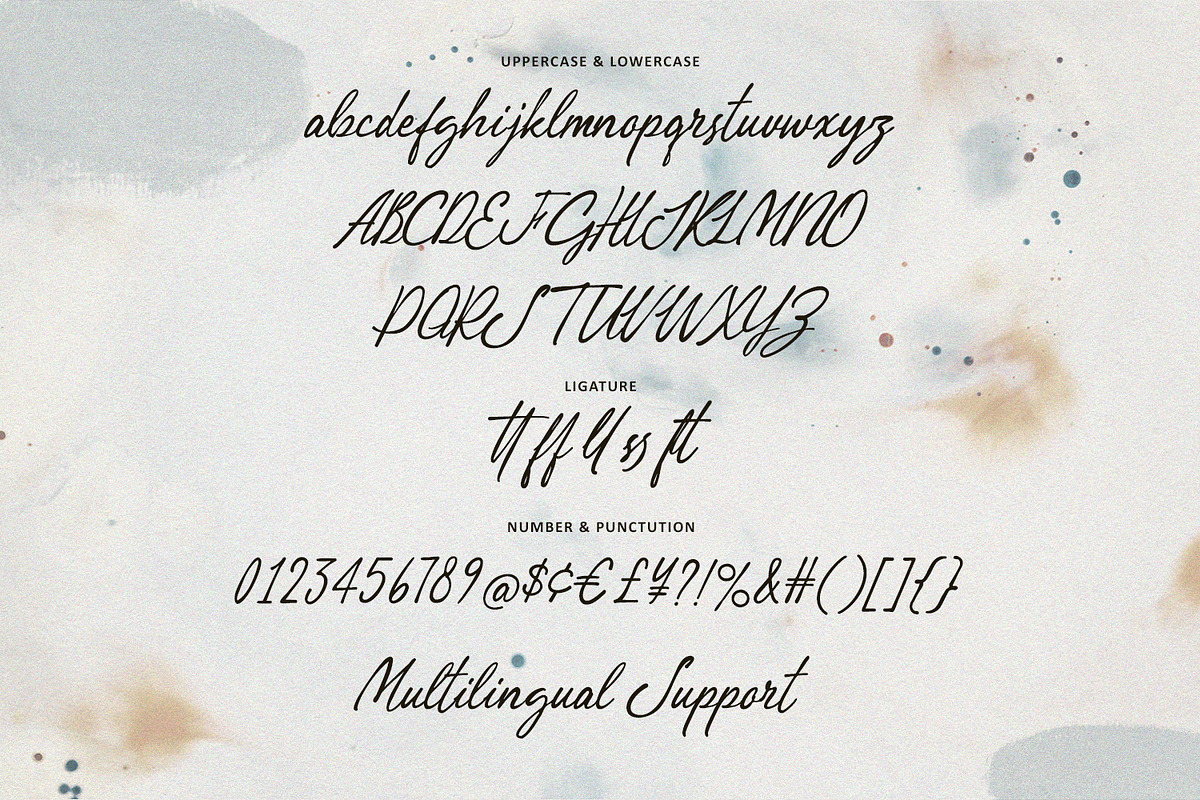 UPPERCASE & LOWERCASE
abcdefghijklmnopqrstuvwxyz
ABCDEFGHIJKLMNO
PQRSTUVWXYZ
LIGATURE
tt ff ll ss ft
NUMBER & PUNCTUTION
0123456789@$¢€£¥?!%&#()[]{}
Multilingual Support